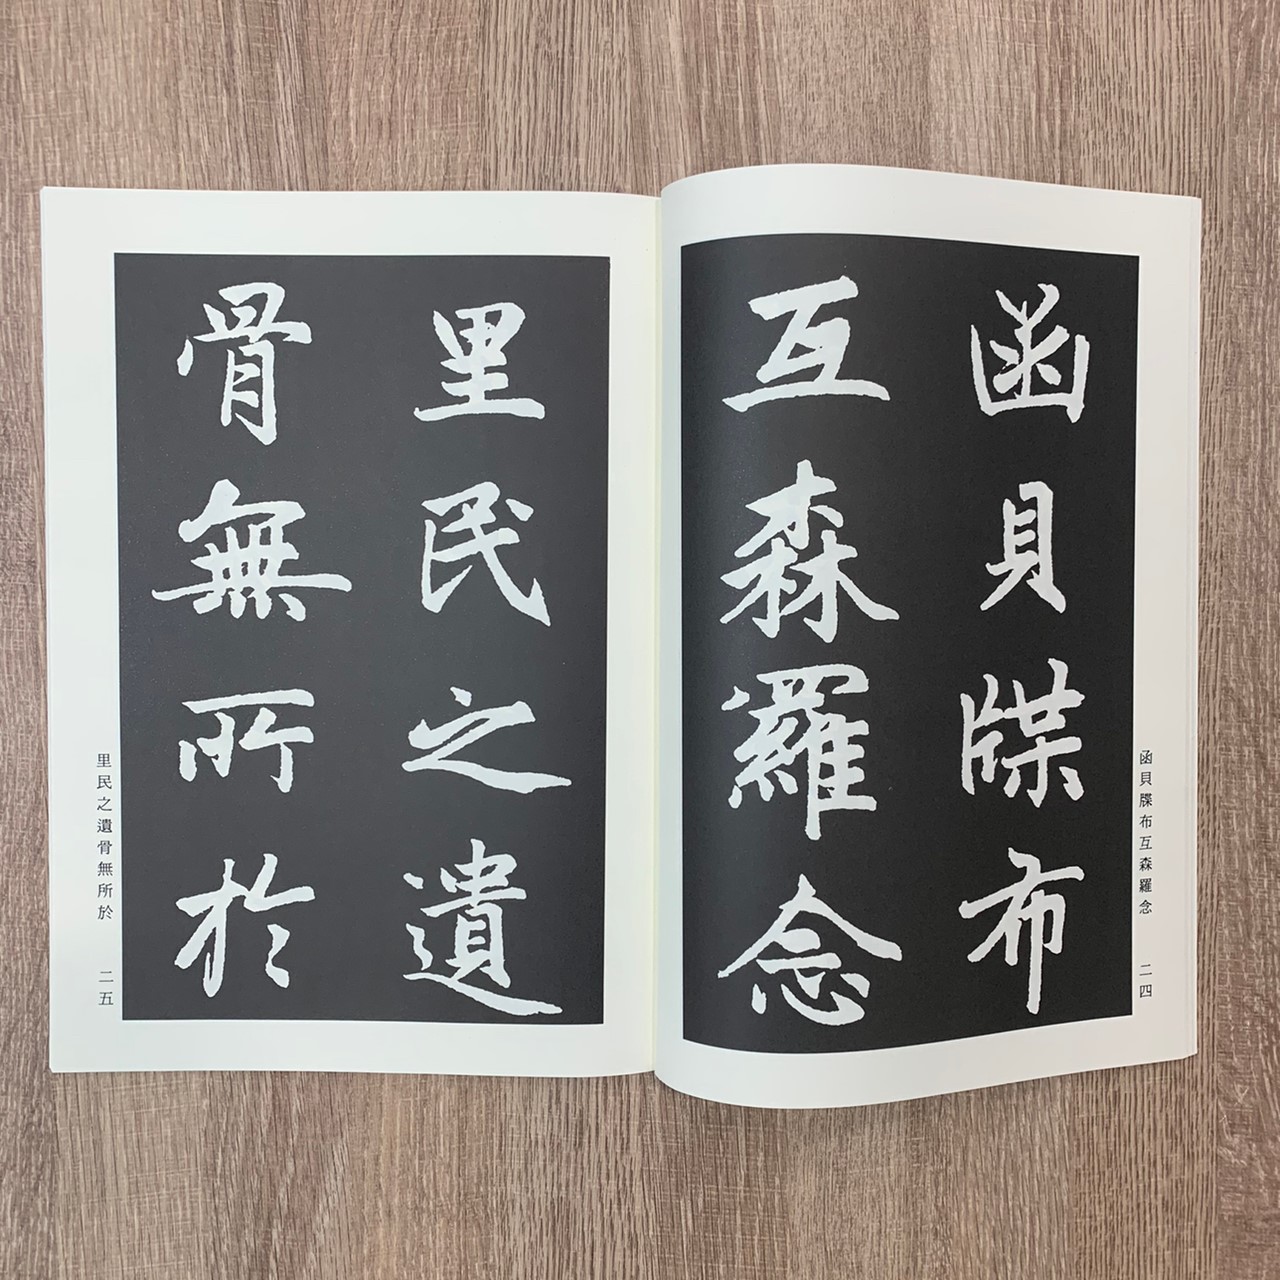 函貝牒布
互森羅念
函貝牒布互森羅念
二四
里民之遺
骨無所於
里民之遺骨無所於
二五